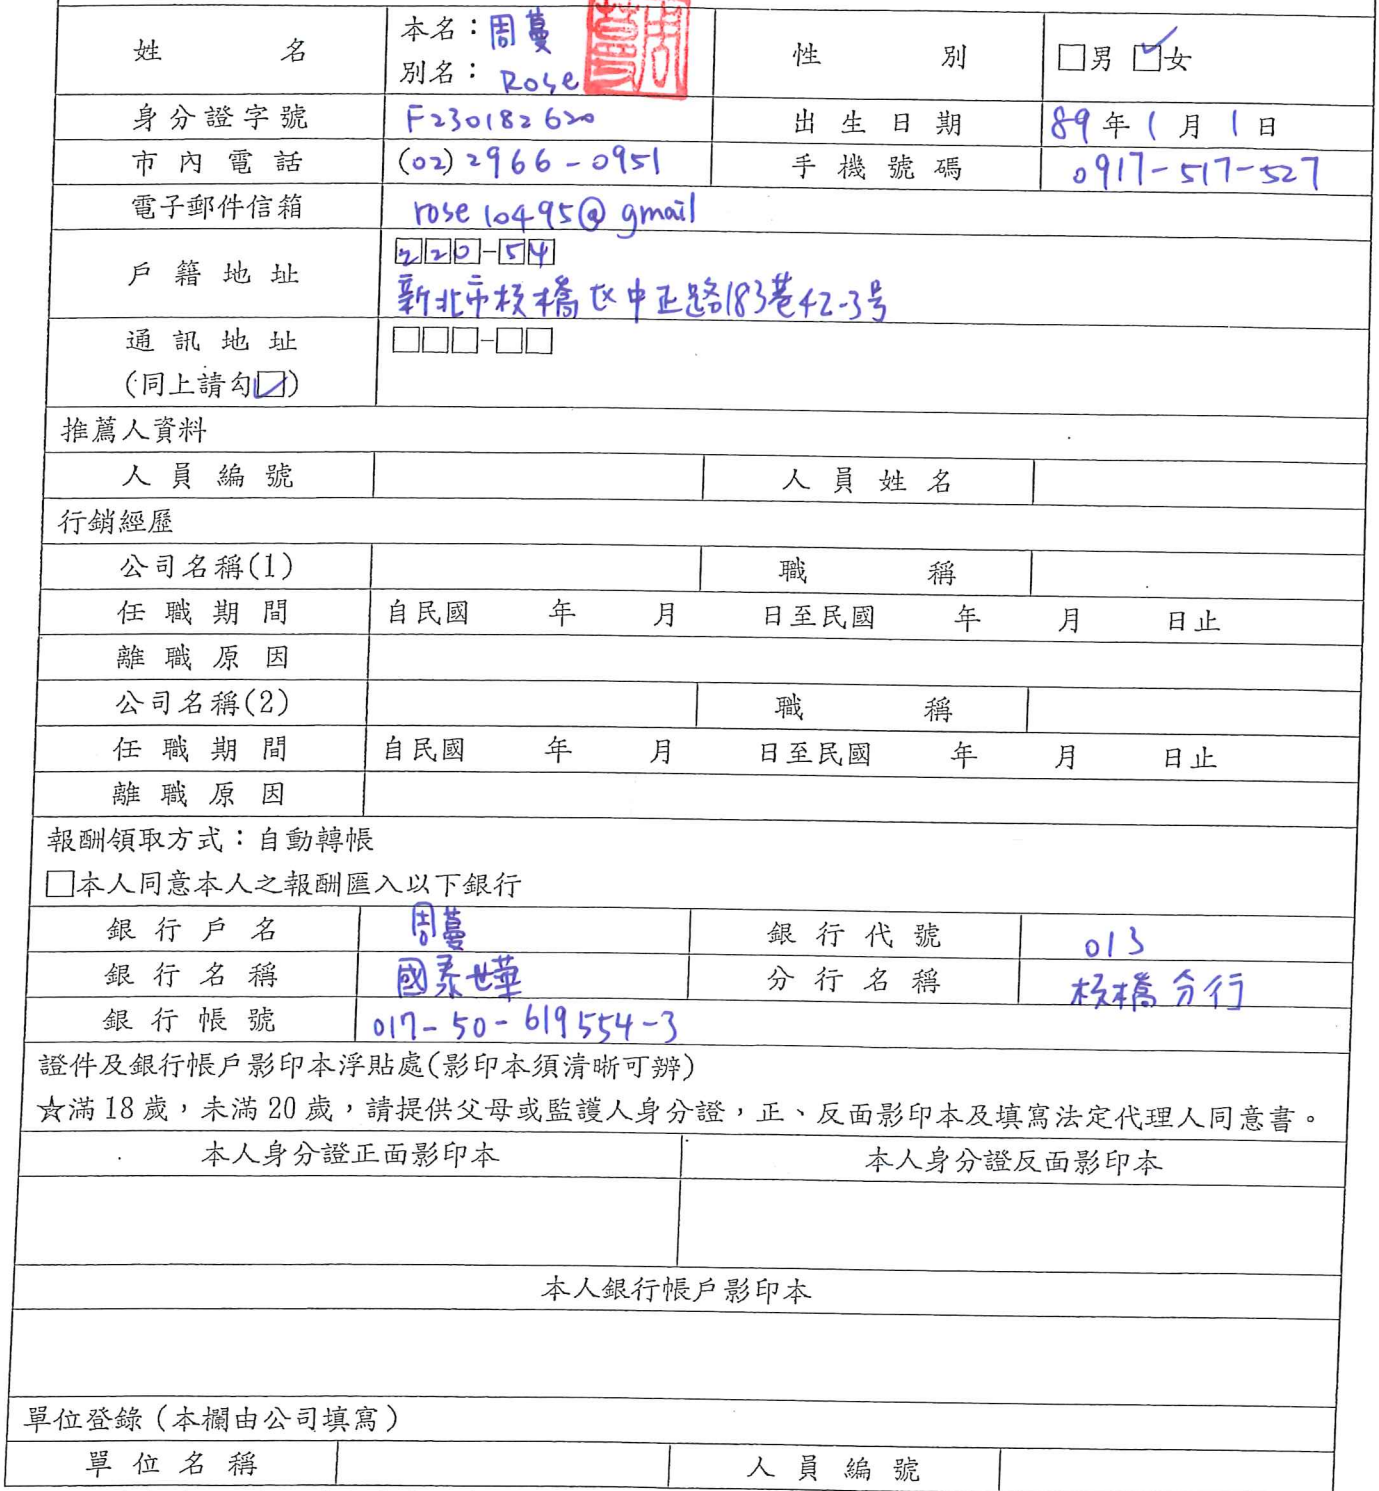 本名：周蔓
姓名 別名：Rose 性別 □男 ☑女
身分證字號 F230182620 出生日期 89年1月1日
市內電話 (02)2966-0951 手機號碼 0917-517-527
電子郵件信箱 rose10495@gmail
220-54
戶籍地址
新北市板橋区中正路183巷42-3号
通訊地址 □□□-□□
(同上請勾☑)
推薦人資料
人員編號 人員姓名
行銷經歷
公司名稱(1) 職稱
任職期間 自民國 年 月 日至民國 年 月 日止
離職原因
公司名稱(2) 職稱
任職期間 自民國 年 月 日至民國 年 月 日止
離職原因
報酬領取方式：自動轉帳
□本人同意本人之報酬匯入以下銀行
銀行戶名 周蔓 銀行代號 013
銀行名稱 國泰世華 分行名稱 板橋分行
銀行帳號 017-50-619554-3
證件及銀行帳戶影印本浮貼處(影印本須清晰可辨)
☆滿18歲，未滿20歲，請提供父母或監護人身分證，正、反面影印本及填寫法定代理人同意書。
本人身分證正面影印本 本人身分證反面影印本
本人銀行帳戶影印本
單位登錄（本欄由公司填寫）
單位名稱 人員編號